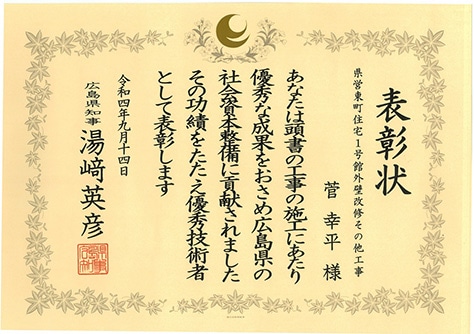 表彰状
県営東町住宅1号館外壁改修その他工事
菅 幸平 様
あなたは頭書の工事の施工にあたり
優秀な成果をおさめ広島県の
社会資本整備に貢献されました
その功績をたたえ優秀技術者
として表彰します
令和四年九月十四日
広島県知事 湯﨑英彦